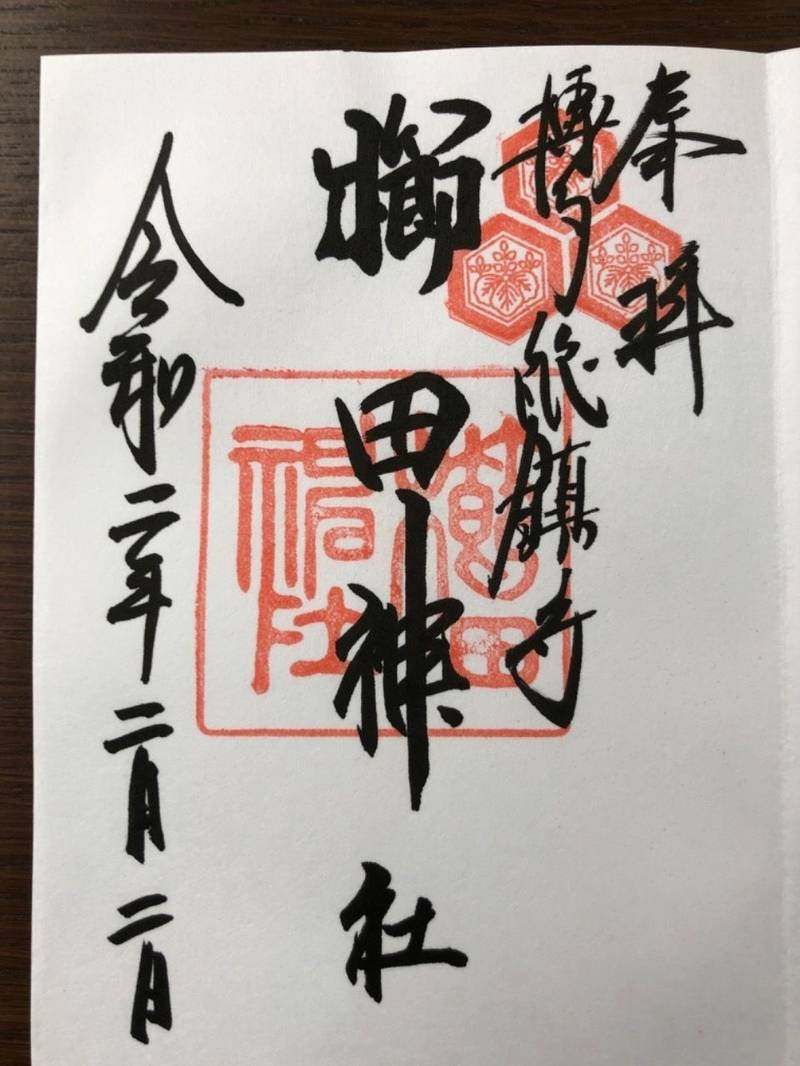 奉拝
博多総鎮守
櫛田神社
櫛田神社
令和二年二月二日